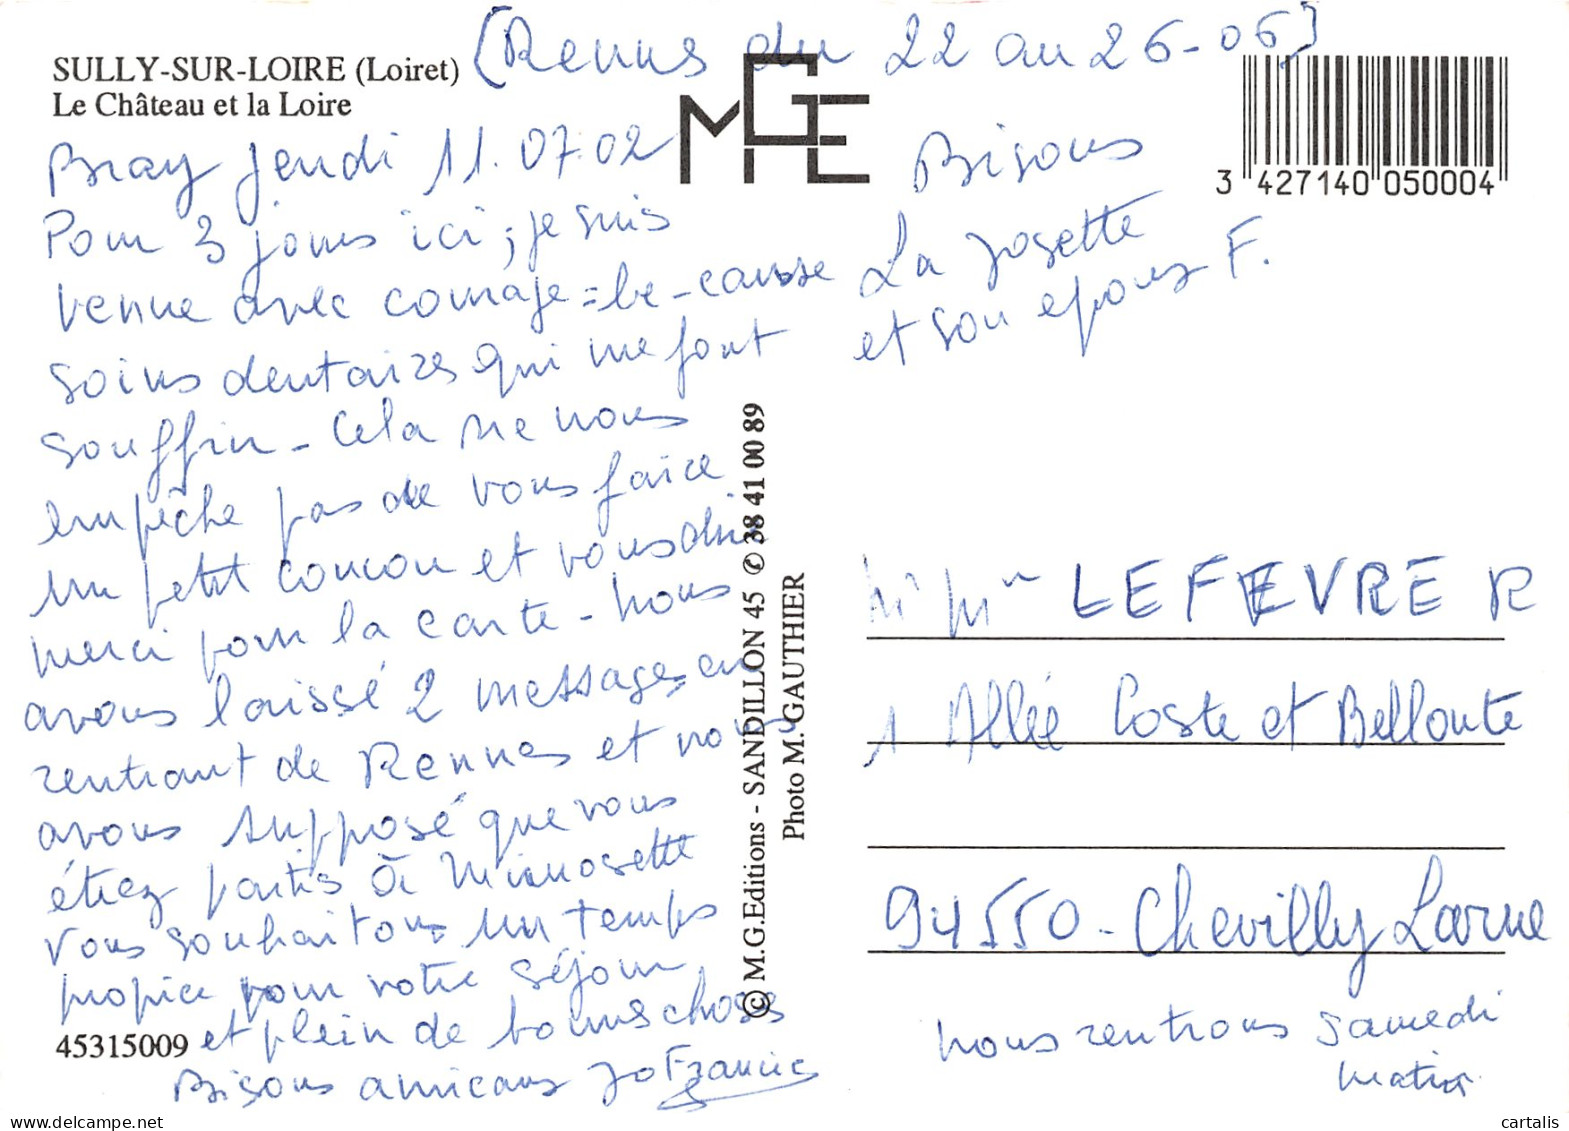 (Rennes du 22 au 26-06)
SULLY-SUR-LOIRE (Loiret)
Le Château et la Loire
MGE
3 427140 050004
Bray jeudi 11.07.02
Pour 3 jours ici ; je suis
venue avec courage = be-causse
soins dentaires qui me font
souffrir - Cela ne nous
empêche pas de vous faire
un petit coucou et vous dire
merci pour la carte - nous
avons laissé 2 messages, en
rentrant de Rennes et nous
avons supposé que vous
étiez partis à Mimosette
Vous souhaitons un temps
propice pour votre séjour
et plein de bonnes choses
Bisous amicaux Jo Francis
45315009
Bisous
La Josette
et son epoux F.
M.G.Editions - SANDILLON 45 ✆ 38 41 00 89
Photo M. GAUTHIER
LEFEVRE R
1 Allée Coste et Bellonte
94550 - Chevilly Larue
nous rentrons samedi
matin
cartalis